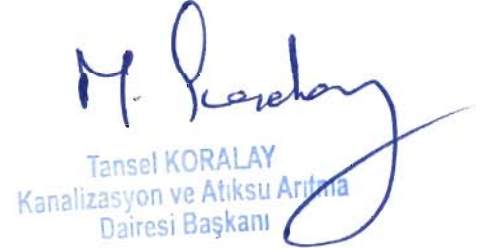 M.
Tansel KORALAY
Kanalizasyon ve Atıksu Arıtma
Dairesi Başkanı